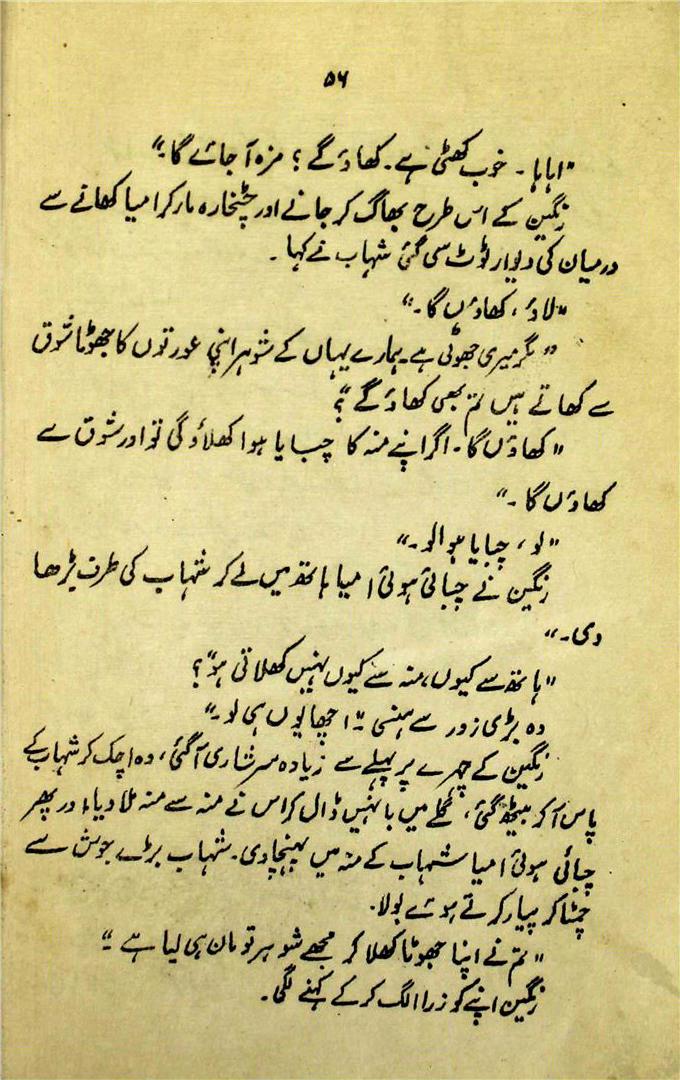 ۵۶
"اہاہا۔ خوب کھٹی ہے۔ کھاؤ گے؟ مزہ آ جائے گا۔"
رنگین کے اس طرح بھاگ کر جانے اور چٹخارہ مار کر امیا کھانے سے
درمیان کی دیوار ٹوٹ سی گئی شہاب نے کہا۔
"لاؤ، کھاؤں گا۔"
"مگر میری جھوٹی ہے۔ ہمارے یہاں کے شوہر اپنی عورتوں کا جھوٹا شوق
سے کھاتے ہیں تم بھی کھاؤ گے"؟
"کھاؤں گا۔ اگر اپنے منہ کا چبایا ہوا کھلاؤ گی تو اور شوق سے
کھاؤں گا۔"
"لو، چبایا ہوا لو۔"
رنگین نے چبائی ہوئی امیا ہاتھ میں لے کر شہاب کی طرف بڑھا
دی۔"
"ہاتھ سے کیوں، منہ سے کیوں نہیں کھلاتی ہو"؟
وہ بڑی زور سے ہنسی۔ "اچھا یوں ہی لو۔"
رنگین کے چہرے پر پہلے سے زیادہ سرشاری آ گئی، وہ اچک کر شہاب کے
پاس آ کر بیٹھ گئی، گلے میں بانہیں ڈال کر اس نے منہ سے منہ ملا دیا، اور پھر
چبائی ہوئی امیا شہاب کے منہ میں پہنچا دی۔ شہاب بڑے جوش سے
چمٹا کر پیار کرتے ہوئے بولا۔
"تم نے اپنا جھوٹا کھلا کر مجھے شوہر تو مان ہی لیا ہے۔"
رنگین اپنے کو ذرا الگ کر کے کہنے لگی۔